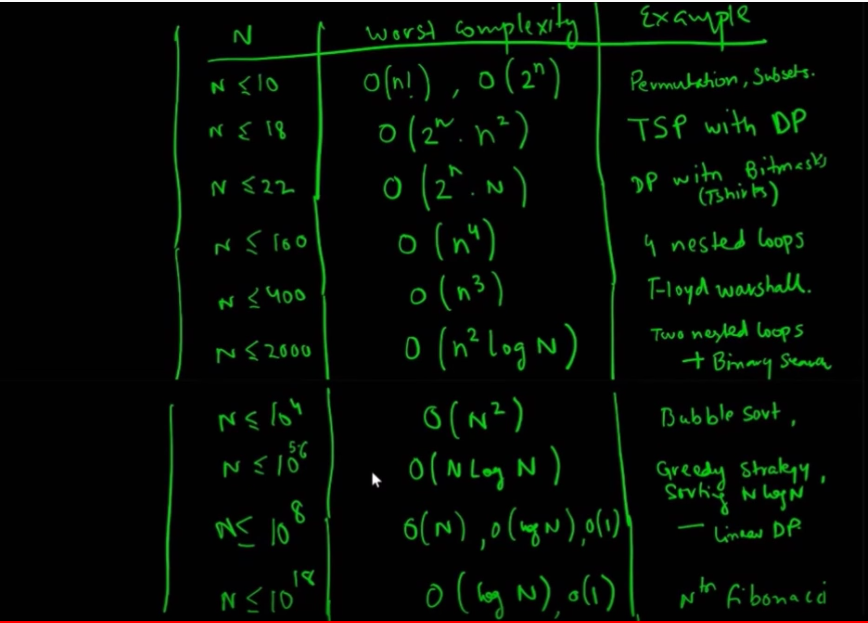 N worst complexity Example
N ≤ 10 O(n!), O(2ⁿ) Permutation, Subsets.
N ≤ 18 O(2ⁿ. n²) TSP with DP
N ≤ 22 O(2ⁿ. N) DP with Bitmasks
(Tshirts)
N ≤ 100 O(n⁴) 4 nested loops
N ≤ 400 O(n³) Floyd warshall.
N ≤ 2000 O(n² log N) Two nested loops
+ Binary Search
N ≤ 10⁴ O(N²) Bubble Sort,
N ≤ 10⁵⁻⁶ O(N Log N) Greedy Strategy,
Sorting N log N
N ≤ 10⁸ O(N), O(log N), O(1) – Linear DP.
N ≤ 10¹⁸ O(log N), O(1) Nᵗʰ fibonacci